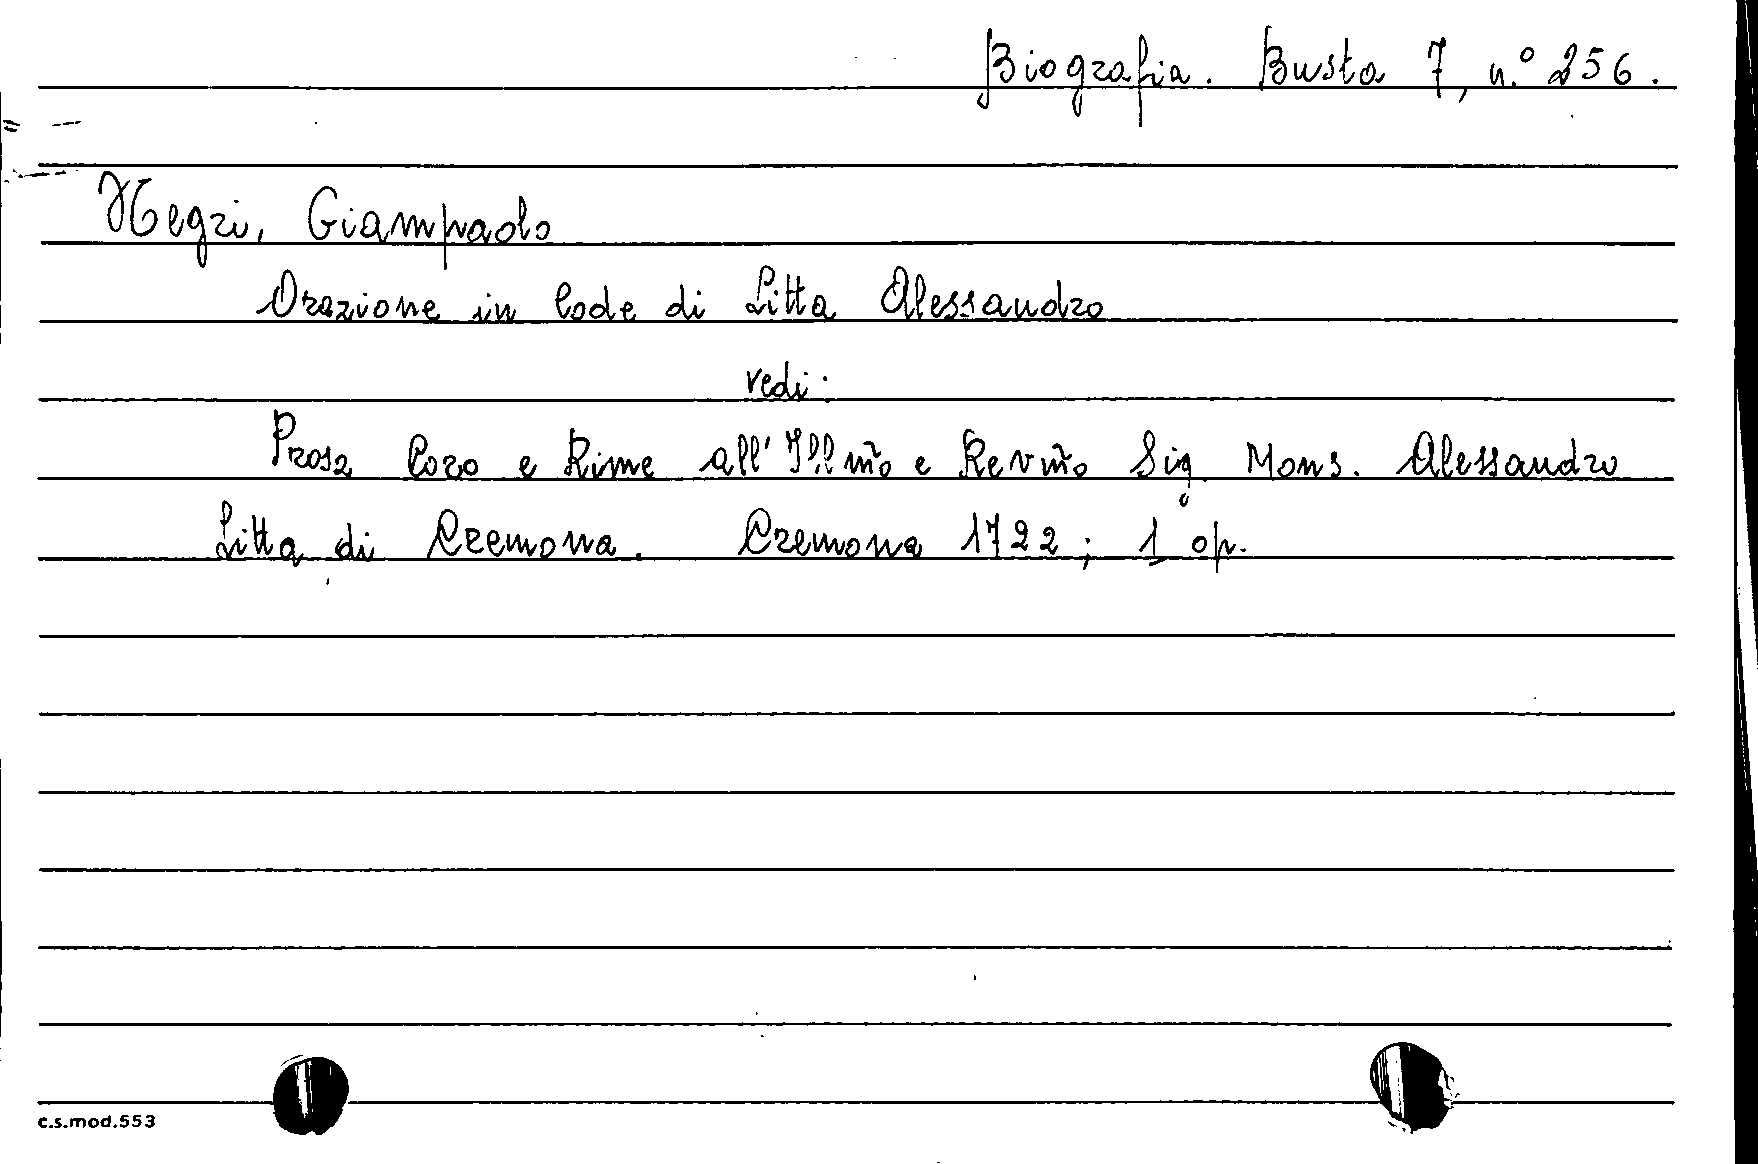 Biografia. Busta 7, n.° 256.
Negri, Giampaolo
Orazione in lode di Litta Alessandro
vedi:
Prosa loro e Rime all'Ill.mõ e Revmõ Sig. Mons. Alessandro
Litta di Cremona. Cremona 1722; 1 op.
c.s.mod.553